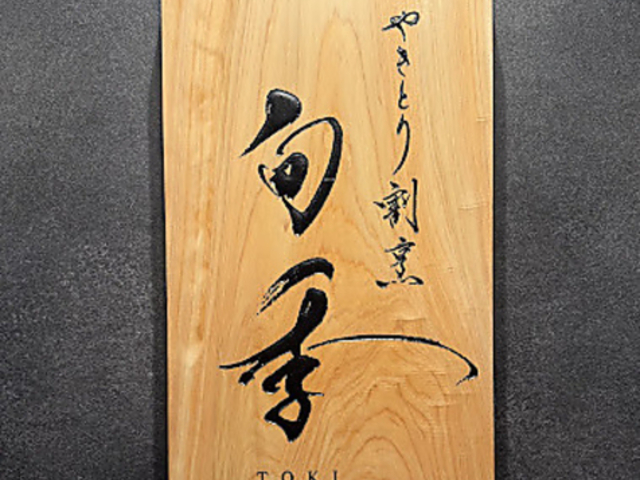 やきとり割烹
旬季
TOKI